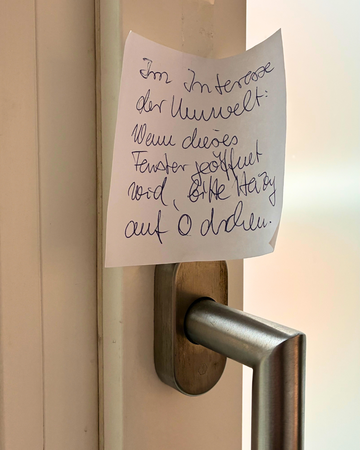 Im Interesse
der Umwelt:
Wenn dieses
Fenster geöffnet
wird, bitte Heizg
auf 0 drehen.